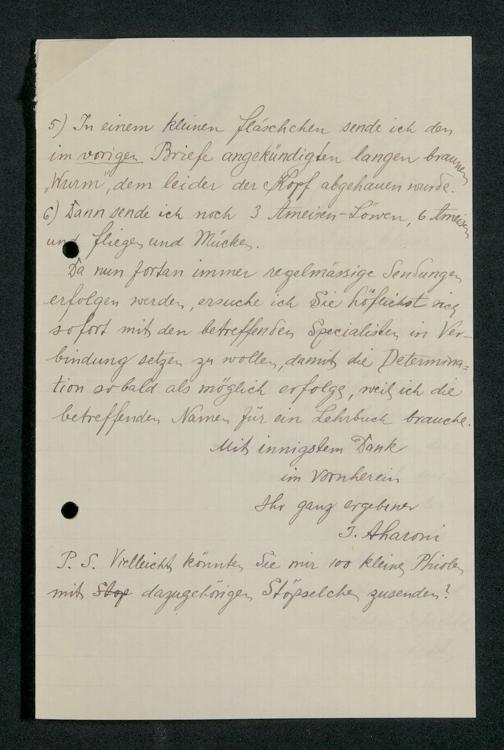 5) In einem kleinen Fläschchen sende ich den
im vorigen Briefe angekündigten langen braunen
„Wurm", dem leider der Kopf abgehauen wurde.
6) Dann sende ich noch 3 Ameisen-Löwen, 6 Ameisen
und Fliegen und Mücken.
Da nun fortan immer regelmässige Sendungen
erfolgen werden, ersuche ich Sie höflichst sich
sofort mit den betreffenden Specialisten in Ver-
bindung setzen zu wollen, damit die Determina-
tion sobald als möglich erfolge, weil ich die
betreffenden Namen für ein Lehrbuch brauche.
Mit innigstem Dank
im vornherein
Ihr ganz ergebener
J. Aharoni
P. S. Vielleicht könnten Sie mir 100 kleine Phiolen
mit Stop dazugehörigen Stöpselchen zusenden?